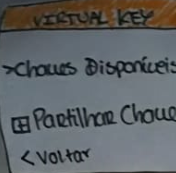 VIRTUAL KEY
>Chaves Disponíveis
Partilhar Chave
<Voltar